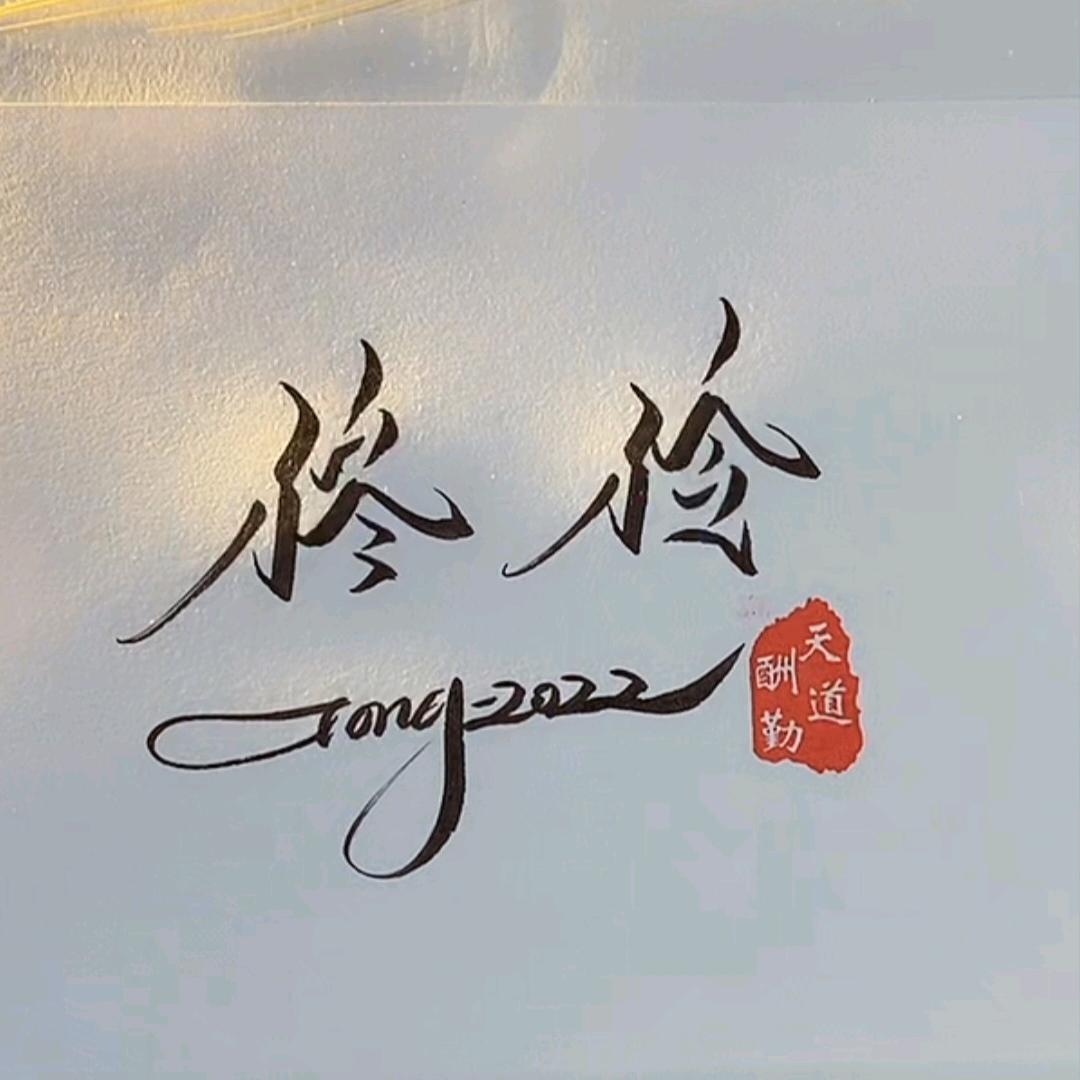 佟
Tong-2022
天道
酬勤